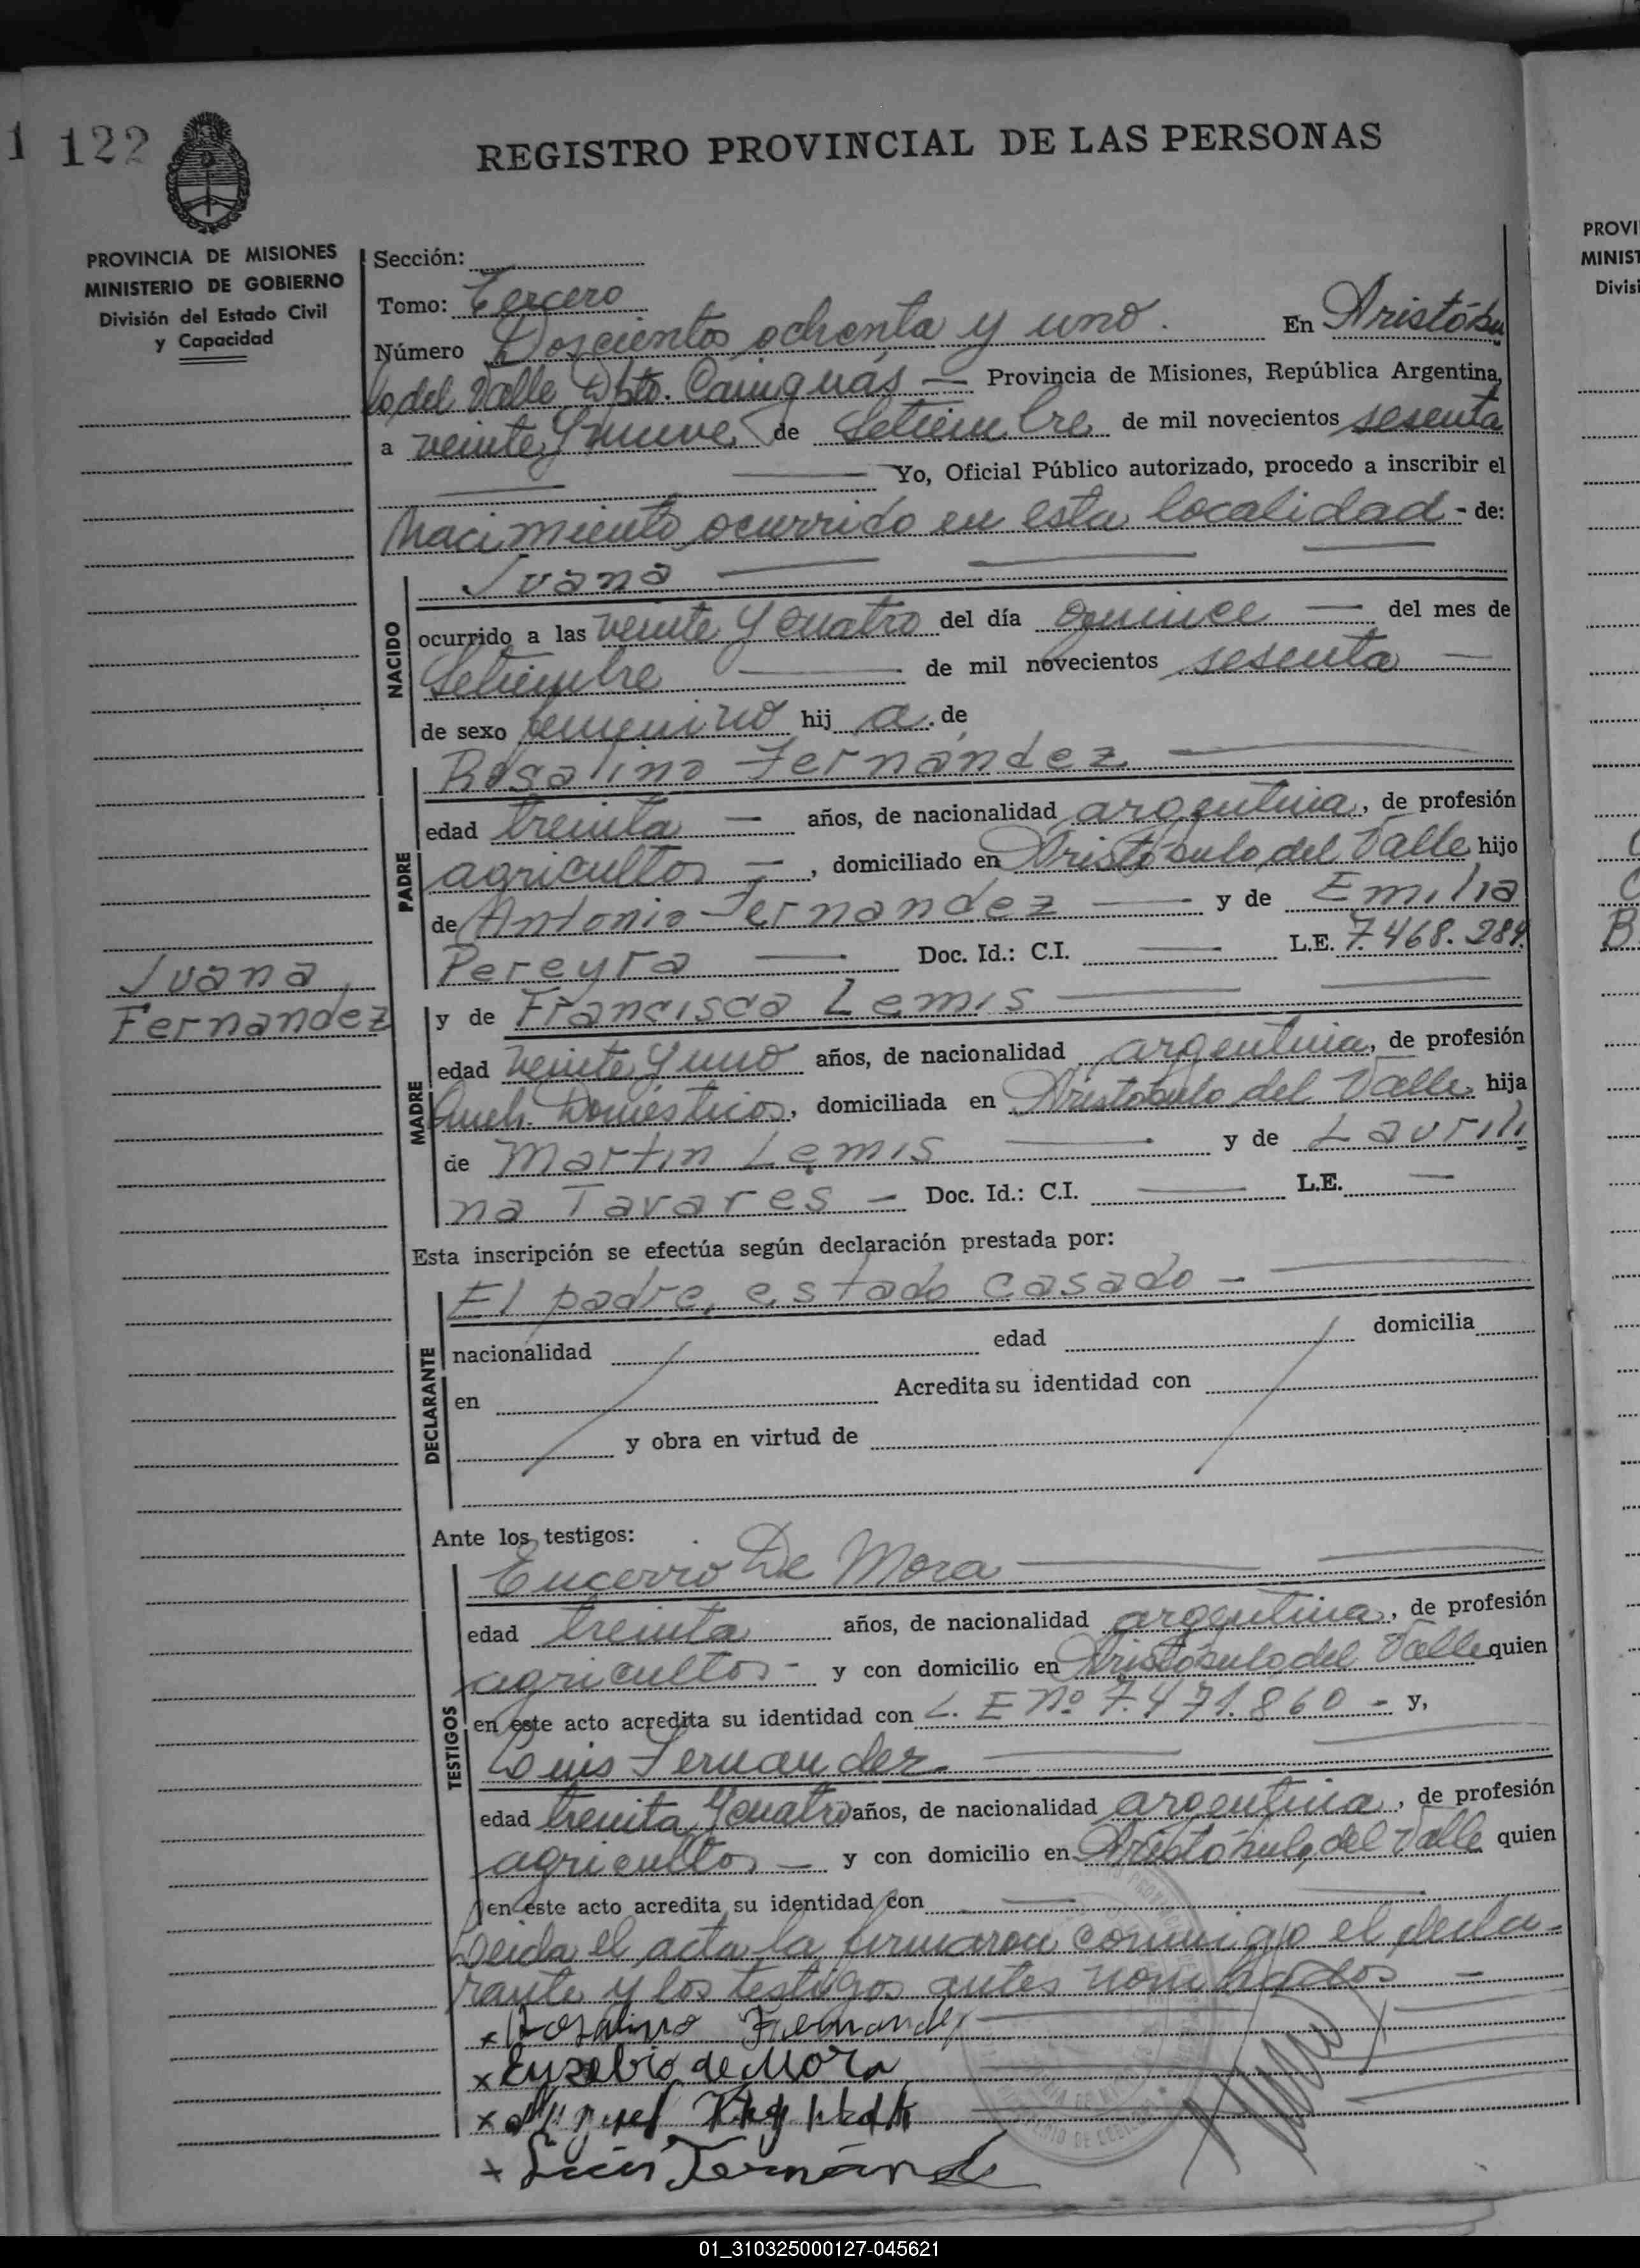 1 122
REGISTRO PROVINCIAL DE LAS PERSONAS
PROVINCIA DE MISIONES
MINISTERIO DE GOBIERNO
División del Estado Civil
y Capacidad
Sección:
Tomo: Tercero
Número Doscientos ochenta y uno. En Aristóbu
lo del Valle Dpto. Cainguás — Provincia de Misiones, República Argentina,
a veinte y nueve de Setiembre de mil novecientos sesenta
Yo, Oficial Público autorizado, procedo a inscribir el
Nacimiento ocurrido en esta localidad - de:
NACIDO
Juana
ocurrido a las veinte y cuatro del día quince — del mes de
Setiembre — de mil novecientos sesenta —
de sexo femenino hij a. de
PADRE
Rosalino Fernández
edad treinta — años, de nacionalidad argentina, de profesión
agricultor —, domiciliado en Aristóbulo del Valle hijo
de Antonio Fernandez — y de Emilia
Pereyra — Doc. Id.: C.I. — L.E. 7.468.284.
Juana
Fernandez
MADRE
y de Francisca Lemis
edad veinte y uno años, de nacionalidad argentina, de profesión
Queh. Domésticos, domiciliada en Aristóbulo del Valle hija
de Martin Lemis — y de Laurili
na Tavares — Doc. Id.: C.I. — L.E. —
Esta inscripción se efectúa según declaración prestada por:
DECLARANTE
El padre, estado casado —
nacionalidad edad domicilia
en Acredita su identidad con
y obra en virtud de
Ante los testigos:
TESTIGOS
De Mora
edad treinta años, de nacionalidad argentina, de profesión
agricultor - y con domicilio en Aristóbulo del Valle quien
en este acto acredita su identidad con L. E Nº 7.471.860 - y,
Luis Fernandez
edad treinta y cuatro años, de nacionalidad argentina, de profesión
agricultor — y con domicilio en Aristóbulo del Valle quien
en este acto acredita su identidad con
Leida el acta la firmaron conmigo el decla-
rante y los testigos antes nombrados —
x Rosalino Fernandez
x Euzebio de Mora
x Miguel
x Luis Fernánde
PROVI
MINIST
Divisi
01_310325000127-045621